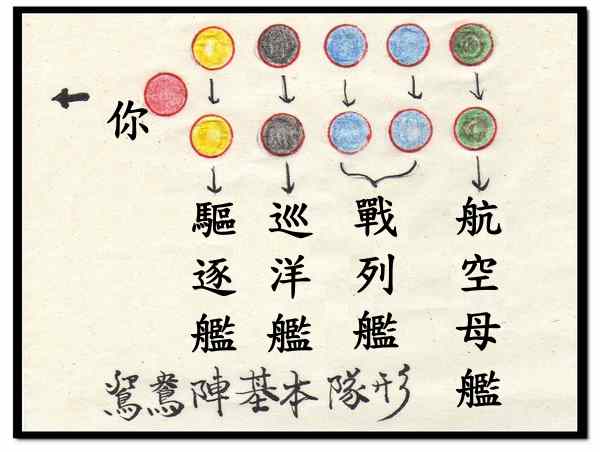 你
驅逐艦
巡洋艦
戰列艦
航空母艦
鴛鴦陣基本隊形